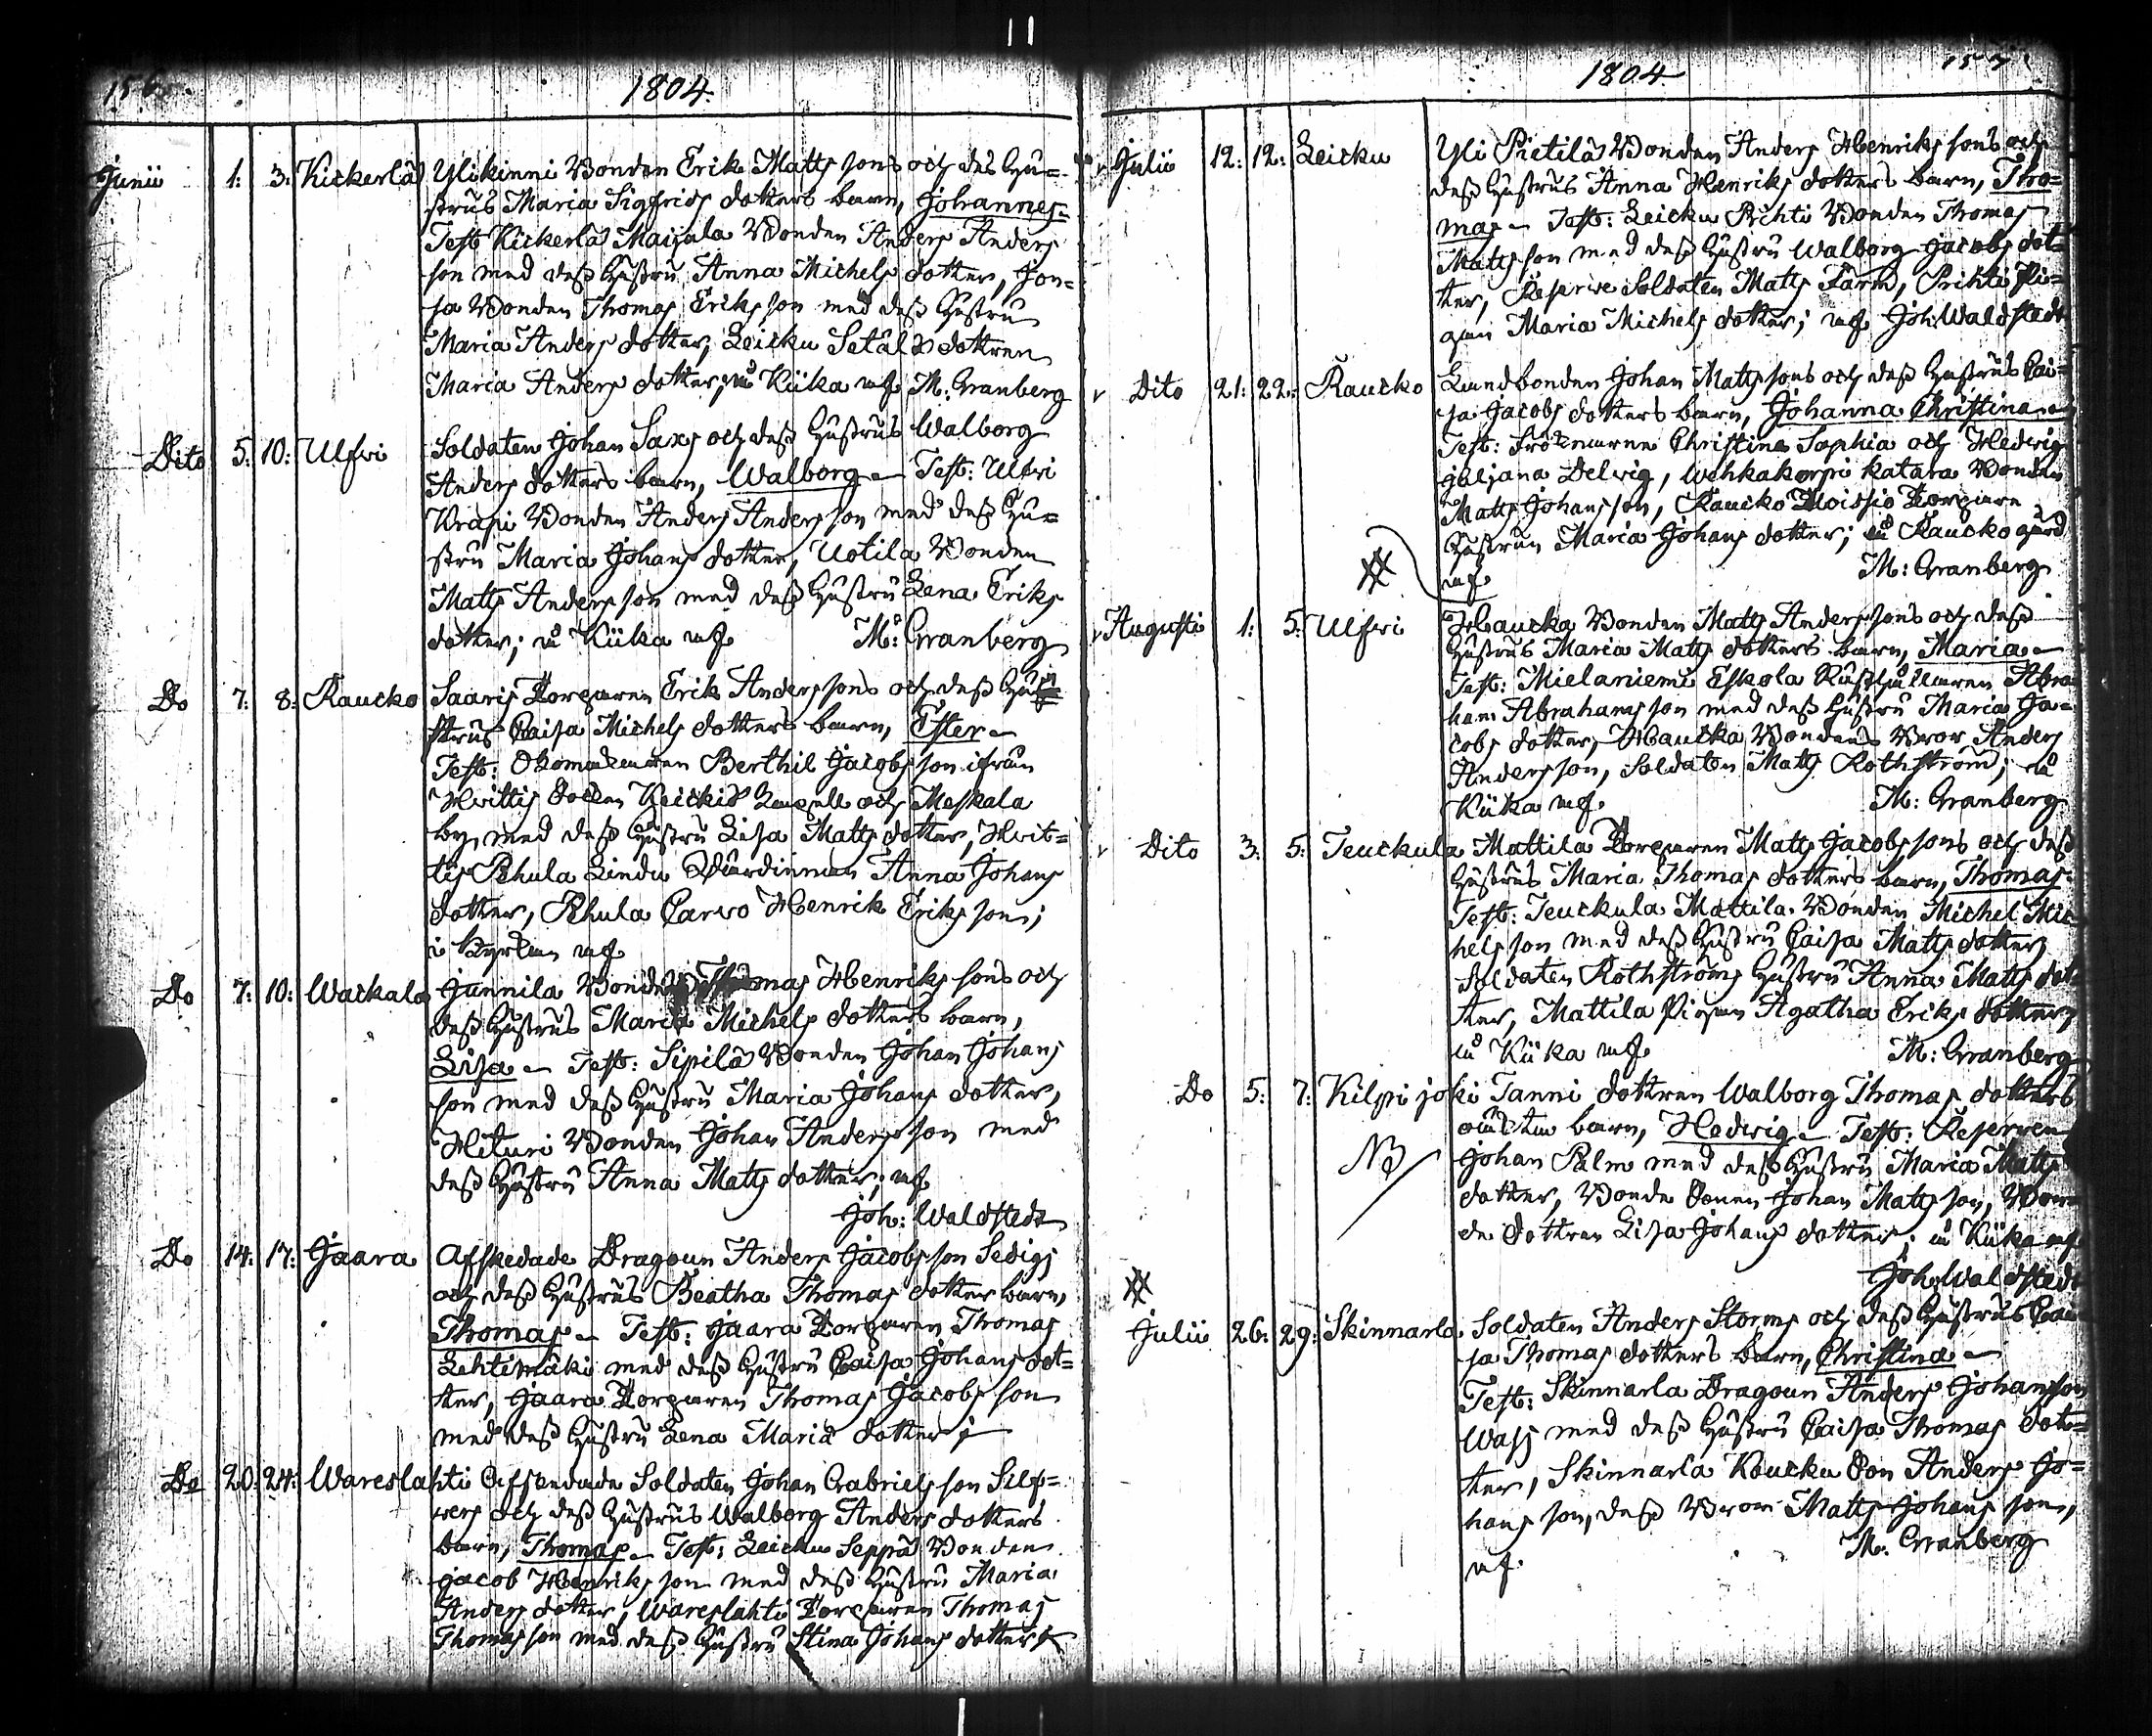 156. 1804.
Junii 1: 3: Kickerlä Ylikinni Bonden Erik Matts sons och des Hu=
strus Maria Sigfrids dotters barn, Johannes=
Test: Kickerlä Maijala Bonden Anders Anders
son med dess Hustru Anna Michels dotter, Jon=
sa Bonden Thomas Eriks son med dess Hustru
Maria Anders dotter, Leicku Setäl dottren
Maria Anders dotter; på Kiika af M: Granberg
Dito 5: 10: Ulfvi Soldaten Johan Saxs och dess Hustrus Walborg
Anders dotters barn, Walborg - Test: Ulfvi
Krapi Bonden Anders Anders son med dess Hu=
stru Maria Johans dotter, Uotila Bonden
Matts Anders son med dess Hustru Lena Eriks
dotter; å Kiika af M: Granberg
Do 7: 8: Raucko Saaris Torparen Erik Anders sons och dess Hu
strus Caisa Michels dotters barn, Ester -
Test: Berthil Jacobs son ifrån
Hvittis Keickiö Capell och Meskala
by, med dess Hustru Lisa Matts dotter, Hvit=
tis Rhula Lindu Wärdinnan Anna Johans
dotter, Rhula Carvo Henrik Eriks son;
i Kyrkan af
Do 7: 10: Wackala Junnila Bonden Thomas Henriks sons och
dess Hustrus Maria Michels dotters barn,
Lisa - Test: Sipilä Bonden Johan Johans
son med dess Hustru Maria Johans dotter,
Hituri Bonden Johan Anders son med
dess Hustru Anna Matts dotter; af
Joh: Waldstedt
Do 14: 17: Jaara Afskedade Dragoun Anders Jacobs son Sedigs
och dess Hustrus Beatha Thomas dotters barn,
Thomas - Test: Jaara Torparen Thomas
Lehtimäki med dess Hustru Caisa Johans dot=
ter, Jaara Torparen Thomas Jacobs son
med dess Hustru Lena Maria dotter;
Do 20: 24: Wareslahti Afskedade Soldaten Johan Gabriels son Silf=
vers och dess Hustrus Walborg Anders dotters
barn, Thomas - Test: Leicku Seppä Bonden
Jacob Henriks son med dess Hustru Maria
Anders dotter, Wareslahti Torparen Thomas
Thomas son med dess Hustru Stina Johans dotter
1804 157
Julii 12: 12: Leicku Yli Pietilä Bonden Anders Henriks sons och
dess Hustrus Anna Henriks dotters barn, Tho=
mas - Test: Leicku Prihti Bonden Thomas
Matts son med dess Hustru Walborg Jacobs dot
ter, Reserve Soldaten Matts Färm, Prihti Pi=
gan Maria Michels dotter; af Joh: Waldstedt
Dito 21: 22: Raucko Landbonden Johan Matts sons och dess Hustrus Cai=
sa Jacobs dotters barn, Johanna Christina -
Test: Frökenarne Christina Sophia och Hedvig
Juljana Delvig, Wehkakorpi Katara Bonden
Matts Johans son, Raucko Torpare
Hustrun Maria Johans dotter; å Raucko gård
af M: Granberg
Augusti 1: 5: Ulfvi Haucka Bonden Matts Anders sons och dess
Hustrus Maria Matts dotters barn, Maria -
Test: Mielaniemi Eskola Rusthållaren Abra
ham Abrahams son med dess Hustru Maria Ja=
cobs dotter, Haucka Bondens Bror Anders
Anders son, Soldaten Matts Rothström; å
Kiika af M: Granberg
Dito 3: 5: Teuckula Mattila Torparen Matts Jacobs sons och dess
Hustrus Maria Thomas dotters barn, Thomas
Test: Teuckula Mattila Bonden Michel Mic
hels son med dess Hustru Caisa Matts dotter,
Soldaten Rothströms Hustru Anna Matts dot
ter, Mattila Pigan Agatha Eriks dotter,
å Kiika af M: Granberg
Do 5: 7: Kilpijoki Tanni dottren Walborg Thomas dotters
oäkta barn, Hedvig - Test: Reserven
NB Johan Palm med dess Hustru Maria Matts
dotter, Bonde Sonen Johan Matts son, Bon=
de dottren Lisa Johans dotter; å Kiika af
Joh: Waldstedt
Julii 26: 29: Skinnarla Soldaten Anders Storms och dess Hustrus Cai
sa Thomas dotters barn, Christina -
Test: Skinnarla Dragoun Anders Johans son
Wass med dess Hustru Caisa Thomas dot=
ter, Skinnarla Koucku Son Anders Jo=
hans son, dess Broor Matts Johans son,
af M: Granberg